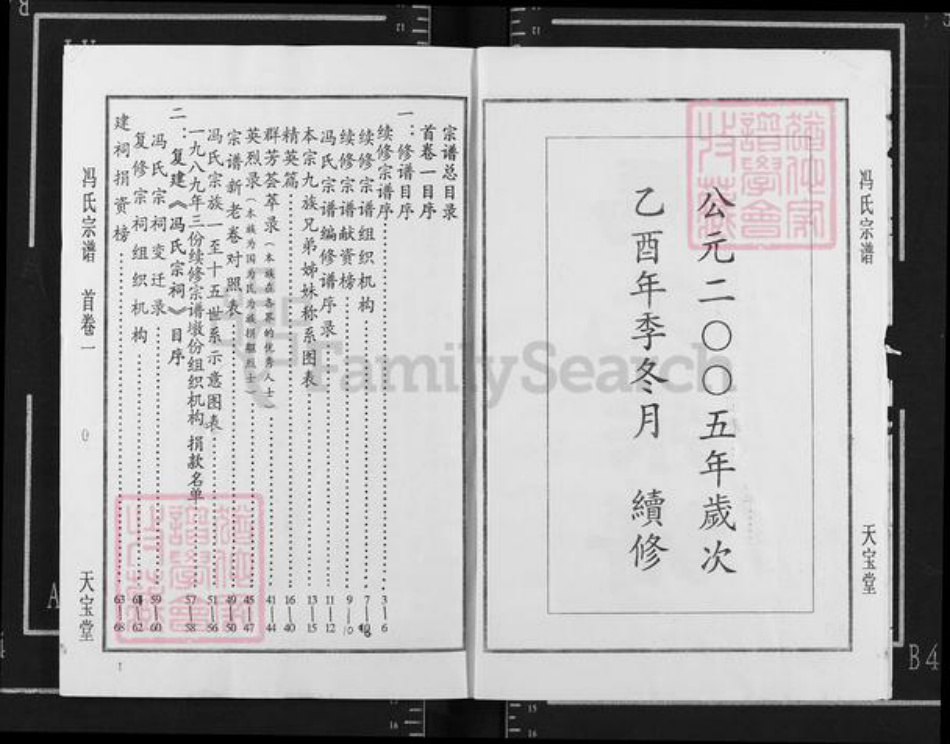 公元二〇〇五年歲次
乙酉年季冬月 續修
冯氏宗谱
天宝堂
宗谱总目录
首卷一目序
一：修谱目序
续修宗谱序 3—6
续修宗谱组织机构 7
续修宗谱献资榜 9—10
冯氏宗谱编修谱序录 11—12
本宗九族兄弟姊妹称系图表 13—15
精英篇 16—40
群芳荟萃录（本族在各界的优秀人士） 41—44
英烈录（本族为国为民为族捐躯烈士） 45—47
宗谱新老卷对照表 49—50
冯氏宗族一至十五世系示意图表 51—56
一九八九年三份续修宗谱墩份组织机构 捐款名单 57—58
二：复建《冯氏宗祠》目序
冯氏宗祠变迁录 59—60
复修宗祠组织机构 61—62
建祠捐资榜 63—68
冯氏宗谱 首卷一
天宝堂
1
FamilySearch
15
16
B4